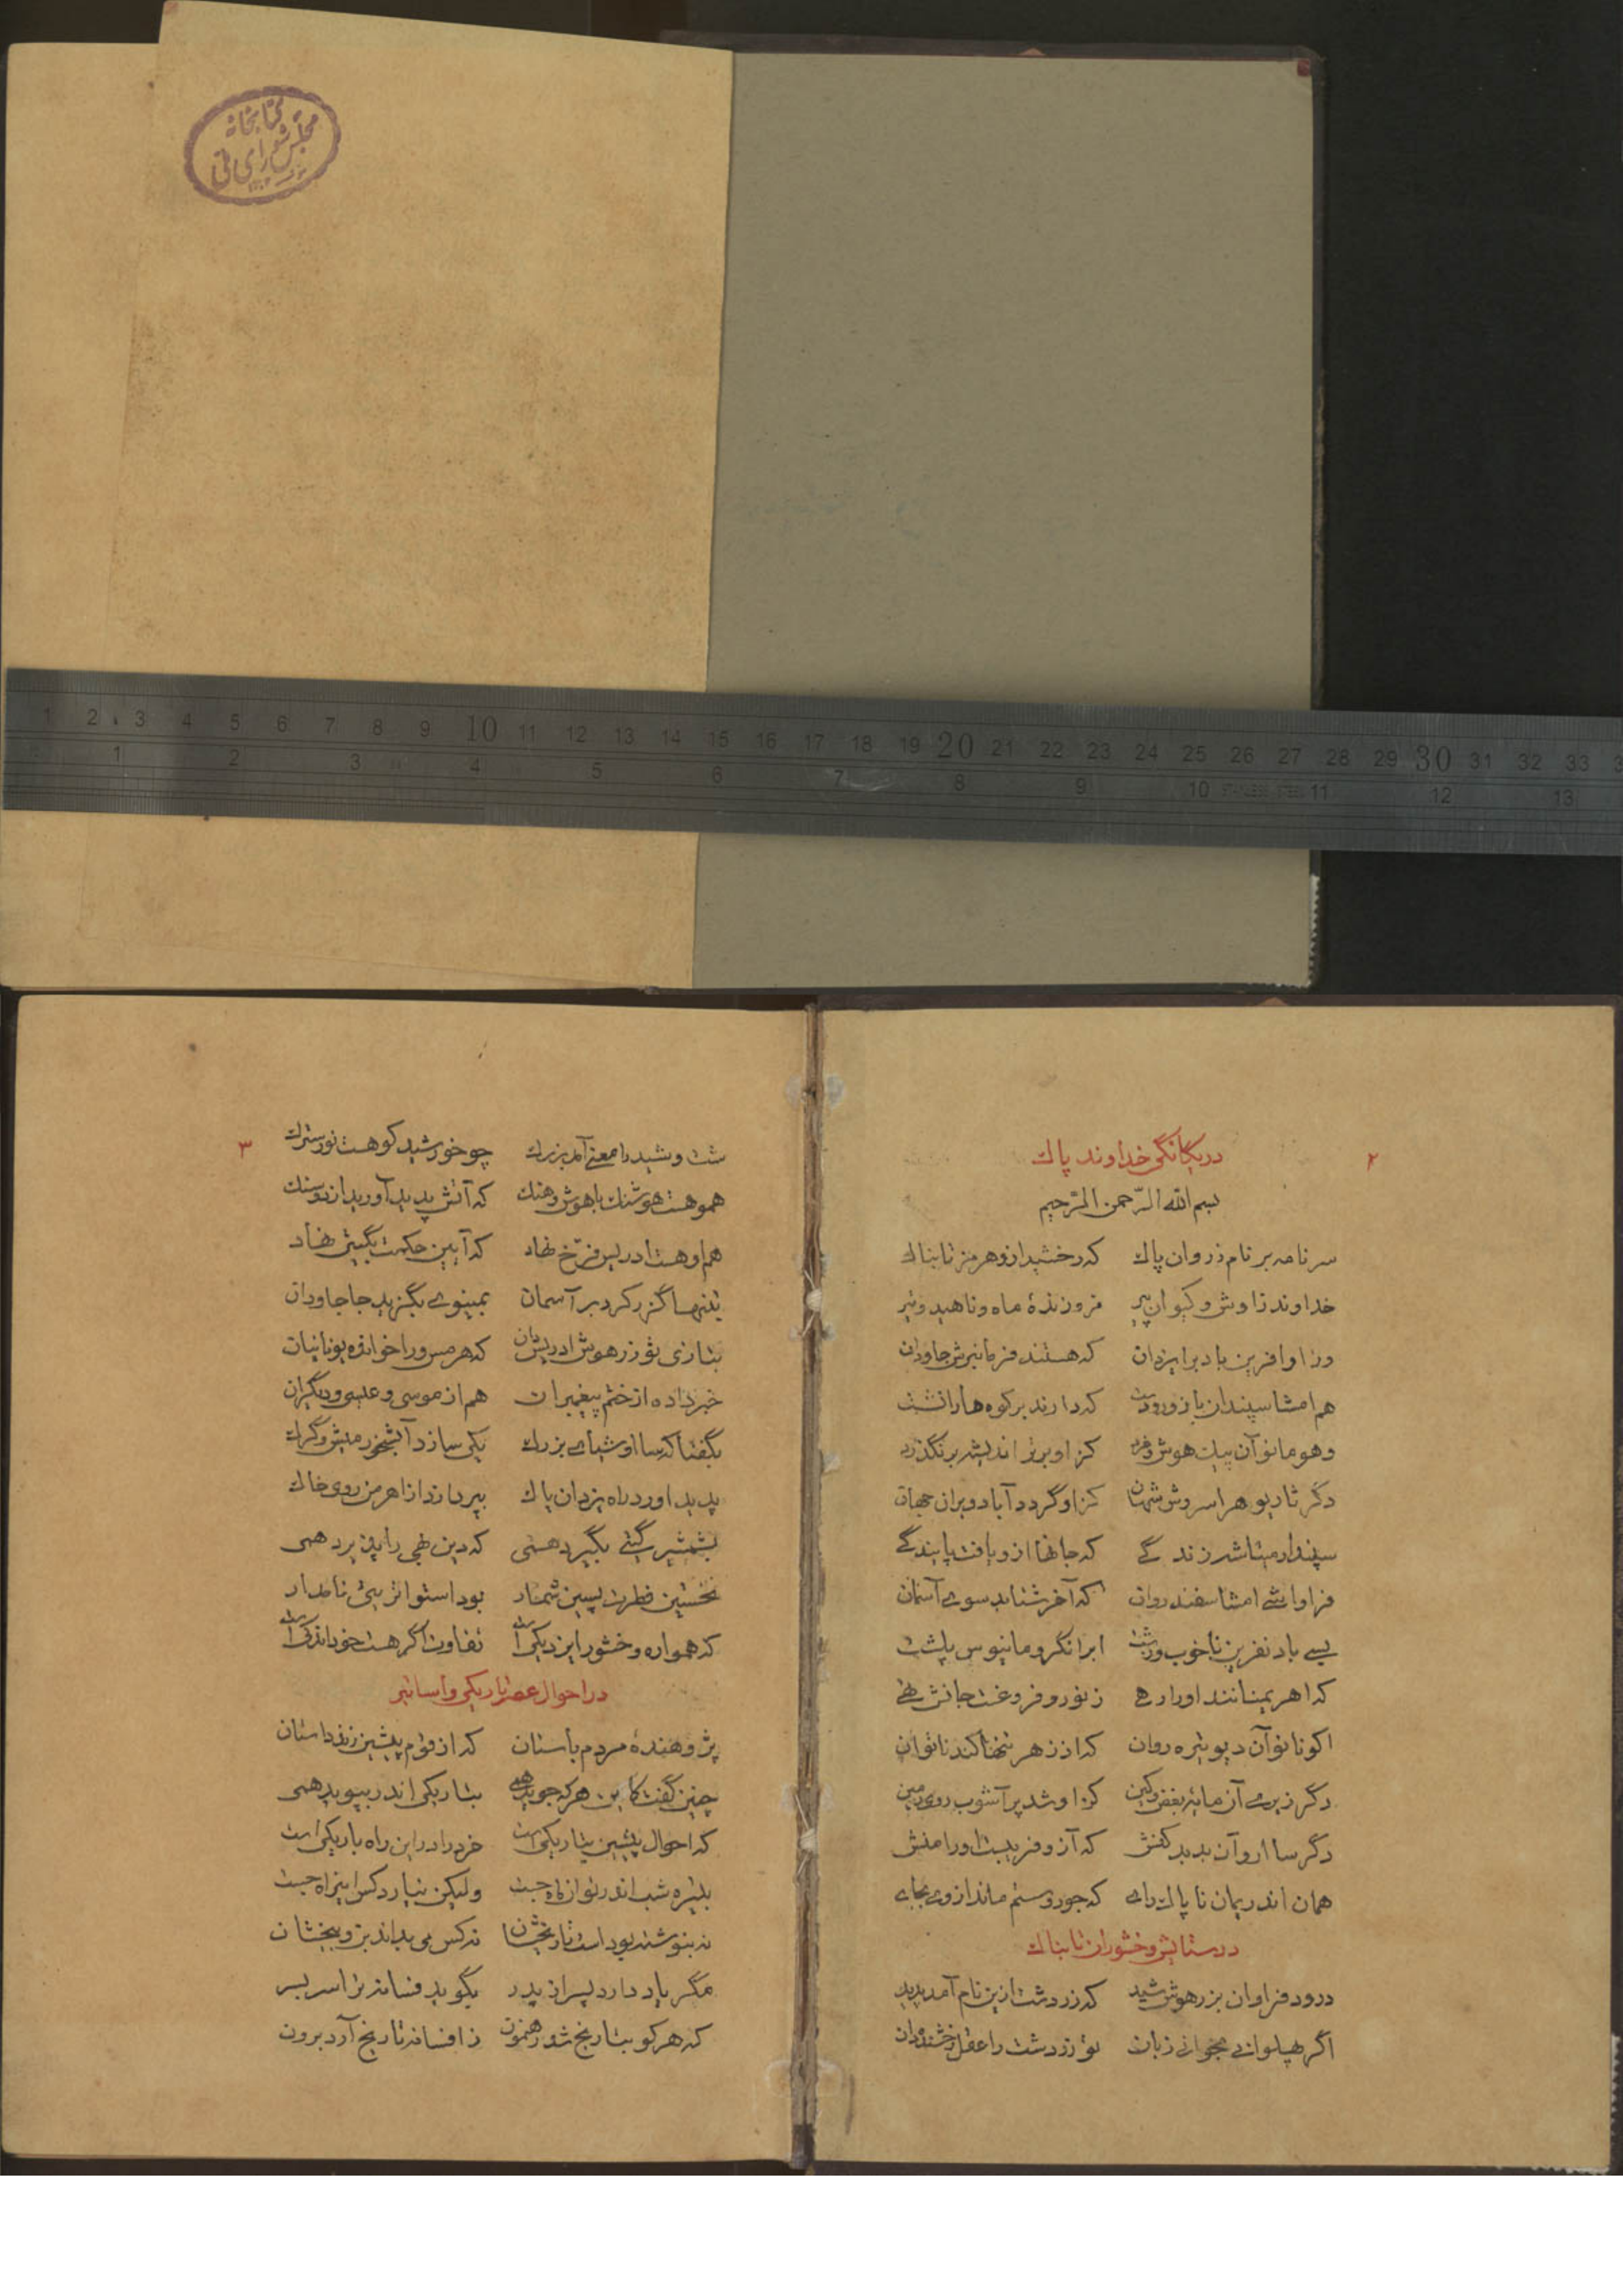 کتابخانه
مجلس شورای ملی
1 2 3 4 5 6 7 8 9 10 11 12 13 14 15 16 17 18 19 20 21 22 23 24 25 26 27 28 29 30 31 32 33
1 2 3 4 5 6 7 8 9 10 STAINLESS STEEL 11 12 13
۲
در یگانگی خداوند پاک
بسم الله الرحمن الرحیم
سر نامه بر نام زروان پاک که رخشید ازو هرمز تابناک
خداوند زاوش و کیوان پیر فروزندهٔ ماه و ناهید و تیر
ورا وافرین باد بر ایزدان که هستند فرمانبرش جاودان
هم امشاسپندان با زور که دارند بر کوه هارا نشست
وهومانو آن پیک هوش و کز او برتر اندیشه برنگذرد
دگر ثاریو هراسروش شهان کز او گردد آباد ویران جهان
سپندارمیتا شه زندگے که جانها از و یافت پایندگے
فراوا شے امشاسفند روان که آخر شتابد سوے آسمان
بسے باد نفرین ناخوب و ابر انگرومانیوس پلشت
که اهریمنانند او را رهے ز نور و فروغست جانش تهے
اکونانو آن دیو تیره روان که از زهر تنها کند ناتوان
دگر زیرے آن مایهٔ بغض وکین کز او شد پر آشوب روی زمین
دگر سااروآن بد بدکنش که آز و فریبست اورا منش
همان اندریمان ناپاک راے که جور و ستم ماند از وے بجاے
در ستایش وخشوران تابناک
درود فراوان بزرهوش شید که زردشت ازین نام آمد پدید
اگر پهلوانے بخوانے زبان تو زردشت را عقل رخشنده دان
۳
شت و شید را معنے آمد بزرک چو خورشید کو هست نور سترک
هموهست هوشنک با هوش و هنک که آتش پدید آورید از دو سنک
هم او هست ادریس فرّخ نهاد که آیین حکمت بگیتی نهاد
بتنها گذر کرد بر آسمان بمینوے بگزید جا جاودان
بتازی تو زرهوش ادریس دان که هرمس ورا خوانده یونانیان
خبر داده از ختم پیغمبران هم از موسی و عیسی و دیگران
بگفتا که سااوشیاے بزرک یکی سازد آبشخور میش و گرک
پدید اورد راه یزدان پاک بپردازد از اهرمن روی خاک
بشمشیر گیتے بگیرد همی که دین بهی را پذیرد همی
نخستین فطرت پسین شمار بود استواتر بیٔ نامدار
که همواره وخشور ایزد یکی است تفاوت اگر هست خود اندکی است
در احوال عصر تاریکی و اساتیر
پژوهندهٔ مردم باستان که از قوم پیشین زند داستان
چنین گفت کاین هرکه جوید همے بتاریکی اندر بپوید همی
که احوال پیشین بتاریکی است خرد را در این راه باریکی است
بتیره شب اندر توان راه جست ولیکن نیارد کس این راه جست
نه بنوشته بود است تاریخشان نه کس می بداند بن و بیخشان
مگر یاد دارد پسر از پدر بگوید فسانه ترا سربسر
که هرکو بتاریخ شد رهنمون ز افسانه تاریخ آرد برون